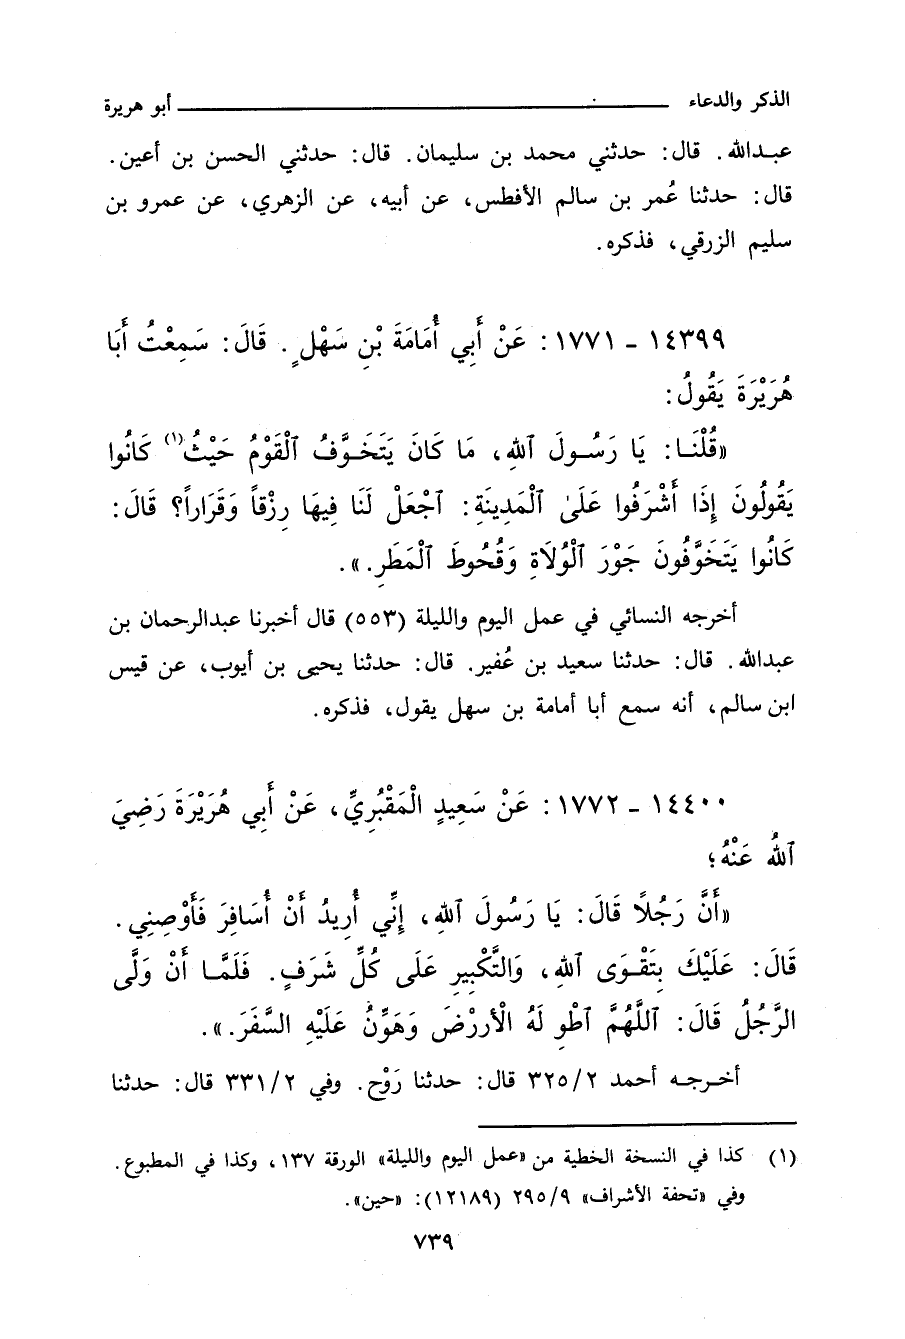 الذكر والدعاء ــــــــــــــــــــ أبو هريرة
عبدالله. قال: حدثني محمد بن سليمان. قال: حدثني الحسن بن أعين.
قال: حدثنا عُمر بن سالم الأفطس، عن أبيه، عن الزهري، عن عمرو بن
سليم الزرقي، فذكره.
١٤٣٩٩ - ١٧٧١ : عَنْ أَبِي أُمَامَةَ بْنِ سَهْلٍ. قَالَ: سَمِعْتُ أَبَا
هُرَيْرَةَ يَقُولُ:
«قُلْنَا: يَا رَسُولَ ٱللهِ، مَا كَانَ يَتَخَوَّفُ ٱلْقَوْمُ حَيْثُ(١) كَانُوا
يَقُولُونَ إِذَا أَشْرَفُوا عَلَىٰ ٱلْمَدِينَةِ: ٱجْعَلْ لَنَا فِيهَا رِزْقاً وَقَرَاراً؟ قَالَ:
كَانُوا يَتَخَوَّفُونَ جَوْرَ ٱلْوُلَاةِ وَقُحُوطَ ٱلْمَطَرِ.».
أخرجه النسائي في عمل اليوم والليلة (٥٥٣) قال أخبرنا عبدالرحمان بن
عبدالله. قال: حدثنا سعيد بن عُفير. قال: حدثنا يحيى بن أيوب، عن قيس
ابن سالم، أنه سمع أبا أمامة بن سهل يقول، فذكره.
١٤٤٠٠ - ١٧٧٢ : عَنْ سَعِيدٍ الْمَقْبُرِيِّ، عَنْ أَبِي هُرَيْرَةَ رَضِيَ
ٱللهُ عَنْهُ؛
«أَنَّ رَجُلًا قَالَ: يَا رَسُولَ ٱللهِ، إِنِّي أُرِيدُ أَنْ أُسَافِرَ فَأَوْصِنِي.
قَالَ: عَلَيْكَ بِتَقْوَى ٱللهِ، وَالتَّكْبِيرِ عَلَى كُلِّ شَرَفٍ. فَلَمَّا أَنْ وَلَّى
الرَّجُلُ قَالَ: ٱللَّهُمَّ ٱطْوِ لَهُ الْأَررْضَ وَهَوِّنْ عَلَيْهِ السَّفَرَ.».
أخرجه أحمد ٣٢٥/٢ قال: حدثنا رَوْح. وفي ٣٣١/٢ قال: حدثنا
(١) كذا في النسخة الخطية من «عمل اليوم والليلة» الورقة ١٣٧، وكذا في المطبوع.
وفي «تحفة الأشراف» ٢٩٥/٩ (١٢١٨٩): «حين».
٧٣٩